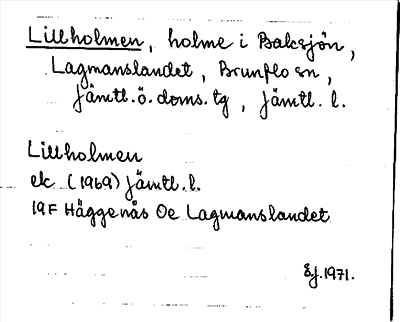 Lillholmen, holme i Baksjön,
Lagmanslandet, Brunflo sn,
Jämtl.ö.doms.tg, Jämtl. l.
Lillholmen
ek (1969) Jämtl.l.
19F Häggenås Oe Lagmanslandet
E.J. 1971.